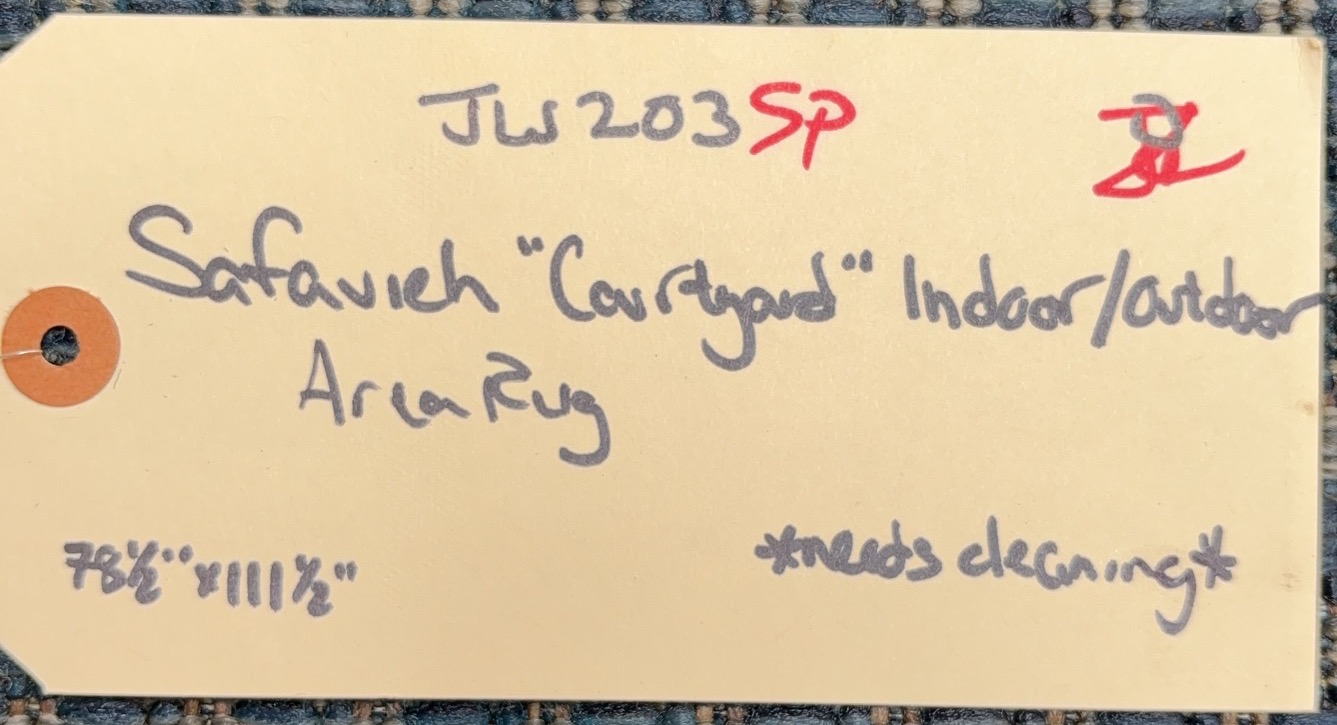 JW203SP
Safavieh "Courtyard" Indoor/Outdoor
Area Rug
78½" x 111½"
*needs cleaning*